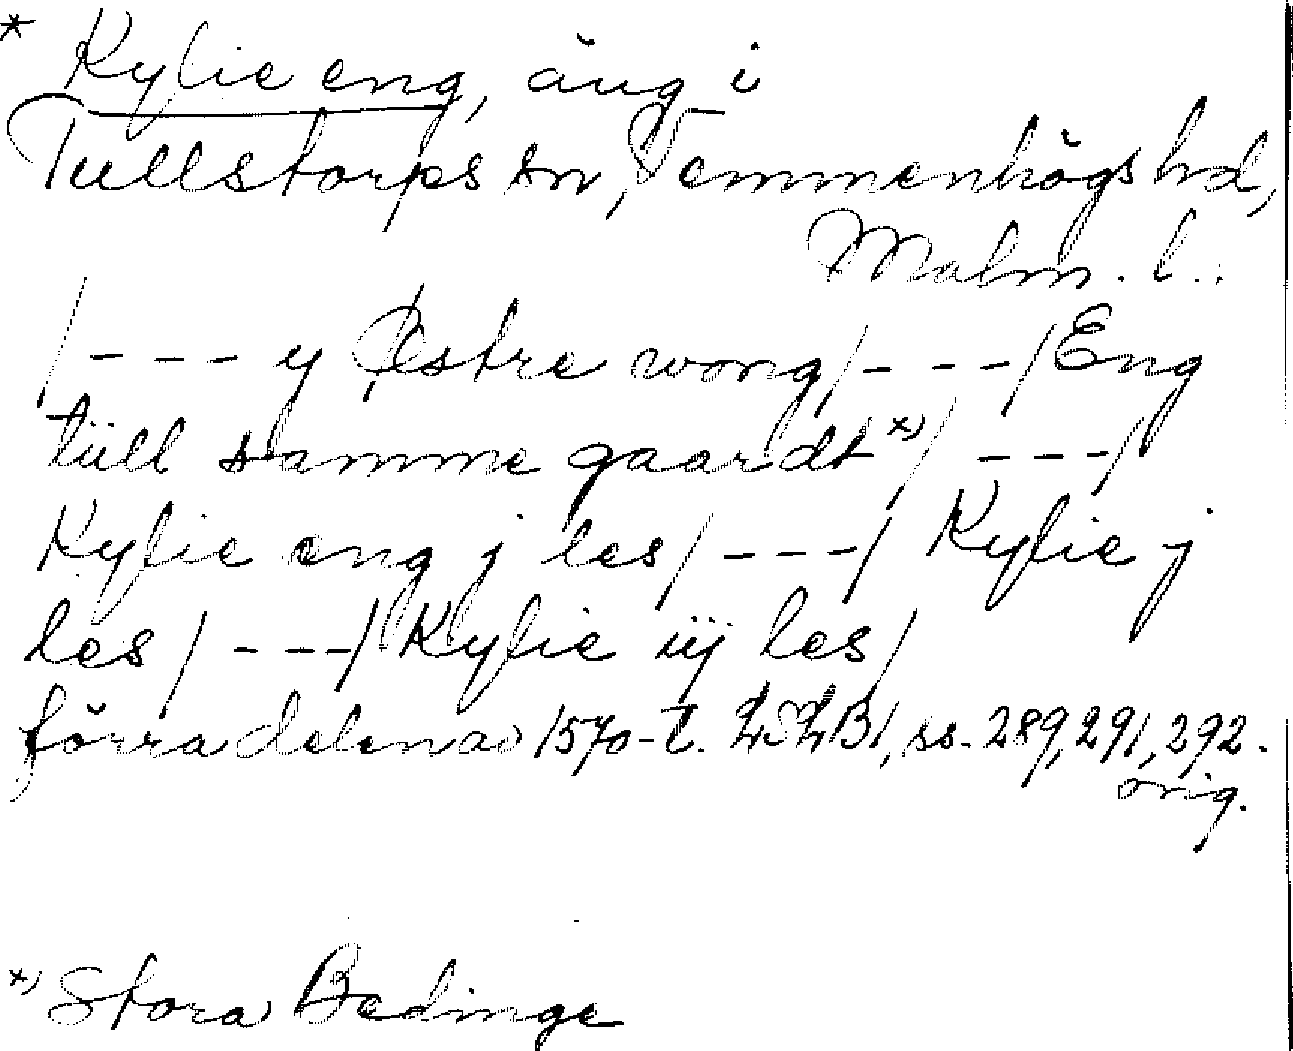 * Kylie eng, äng i
Tullstorps sn, Vemmenhögs hd,
Malm. l.
/--- y Østre wong/---/Eng
tüll samme gaardt x)/---/
Kylie eng j les/---/ Kylie j
les/---/Kylie iij les/
förra delen av 1570-t. LSLB1, ss. 289, 291, 292.
orig.
x) Stora Bedinge